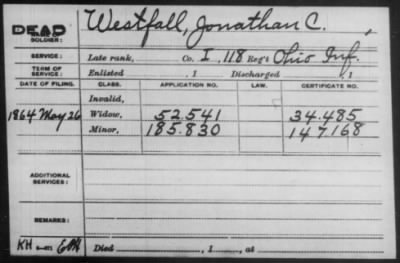 DEAD Westfall, Jonathan C.
SOLDIER:
SERVICE: Late rank, Co. I, 118 Reg't Ohio Inf.
TERM OF SERVICE: Enlisted , 1 Discharged , 1
DATE OF FILING. CLASS. APPLICATION NO. LAW. CERTIFICATE NO.
Invalid,
1864 May 26 Widow, 52.541 34.485
Minor, 185.830 147168
ADDITIONAL SERVICES:
REMARKS:
KH Died , 1 , at